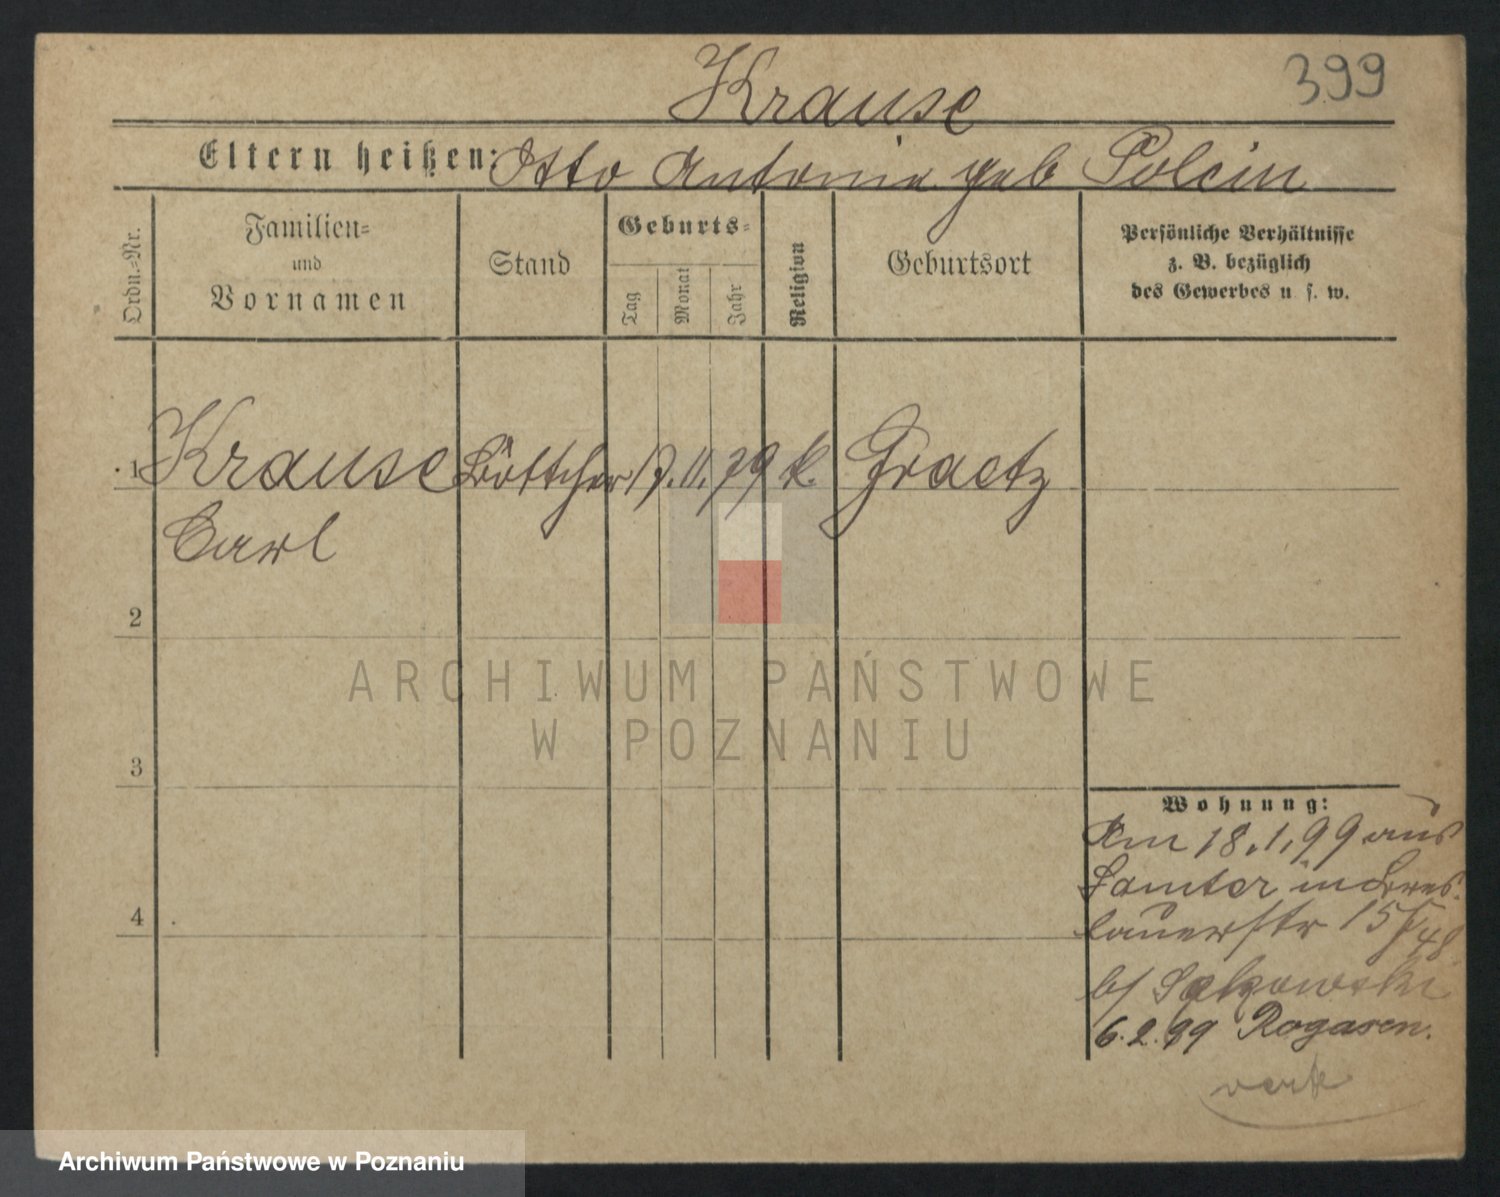 Krause
399
Eltern heißen: Otto Antonie geb Polcin
Ordn.-Nr.
Familien-
und
Vornamen
Stand
Geburts-
Tag
Monat
Jahr
Religion
Geburtsort
Persönliche Verhältnisse
z. B. bezüglich
des Gewerbes u. s. w.
1 Krause Böttcher 17. 11. 79 k. Graetz
Carl
2
ARCHIWUM PAŃSTWOWE
W POZNANIU
3
Wohnung:
Am 18.1.99 aus
Samter in Bres-
4
lauerstr 15
b/
6.2.99 Rogasen.
Archiwum Państwowe w Poznaniu